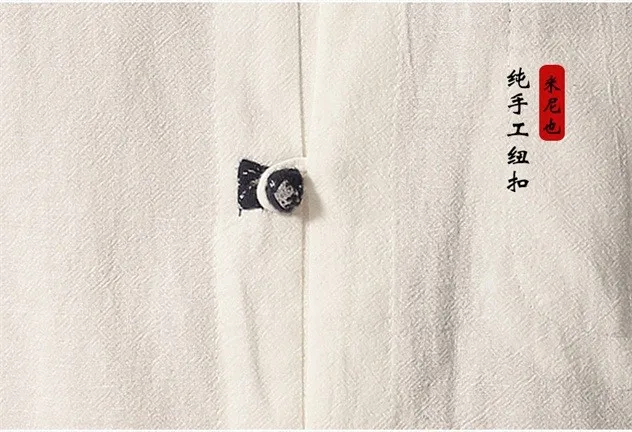 米尼也
纯手工纽扣